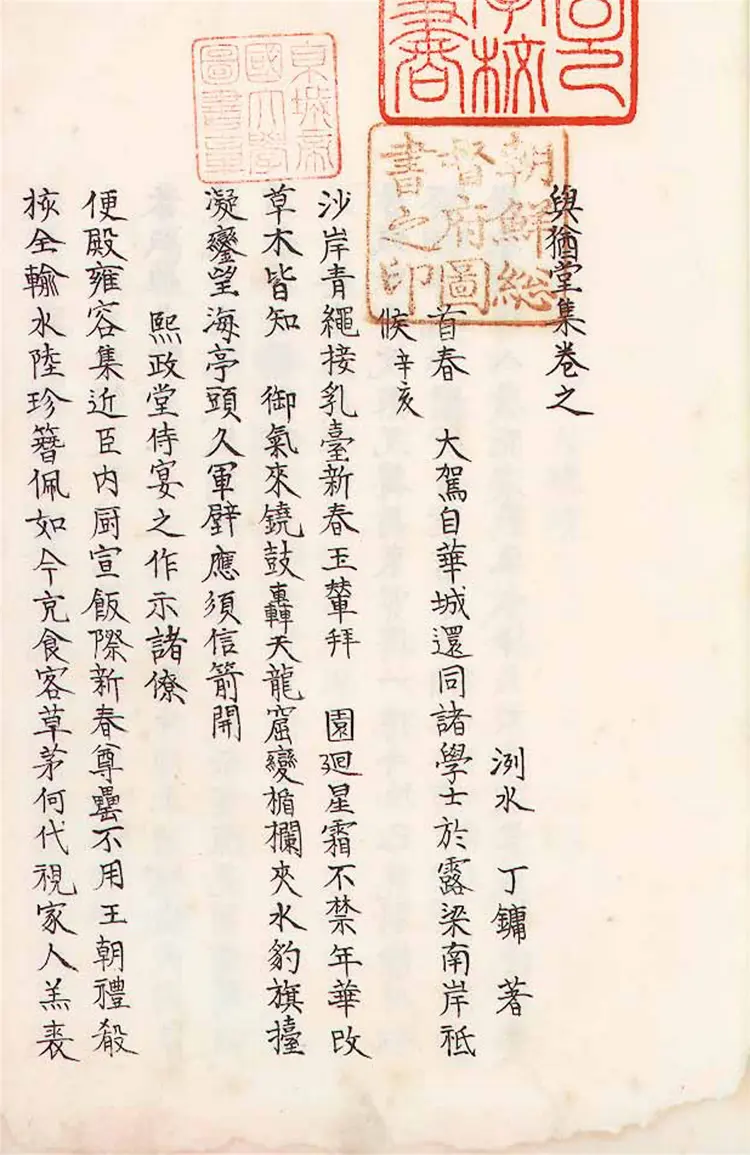 朝鮮総
督府圖
書之印
京城帝
國大學
圖書章
與猶堂集卷之
洌水 丁鏞 著
首春 大駕自華城還同諸學士於露梁南岸祗
候辛亥
沙岸青繩接乳臺新春玉輦拜 園廻星霜不禁年華改
草木皆知 御氣來鐃鼓轟天龍窟變楯欄夾水豹旗擡
凝鑾望海亭頭久軍壁應須信箭開
熙政堂侍宴之作示諸僚
便殿雍容集近臣内厨宣飯際新春尊罍不用王朝禮殽
核全輸水陸珍簪佩如今充食客草茅何代視家人羔裘